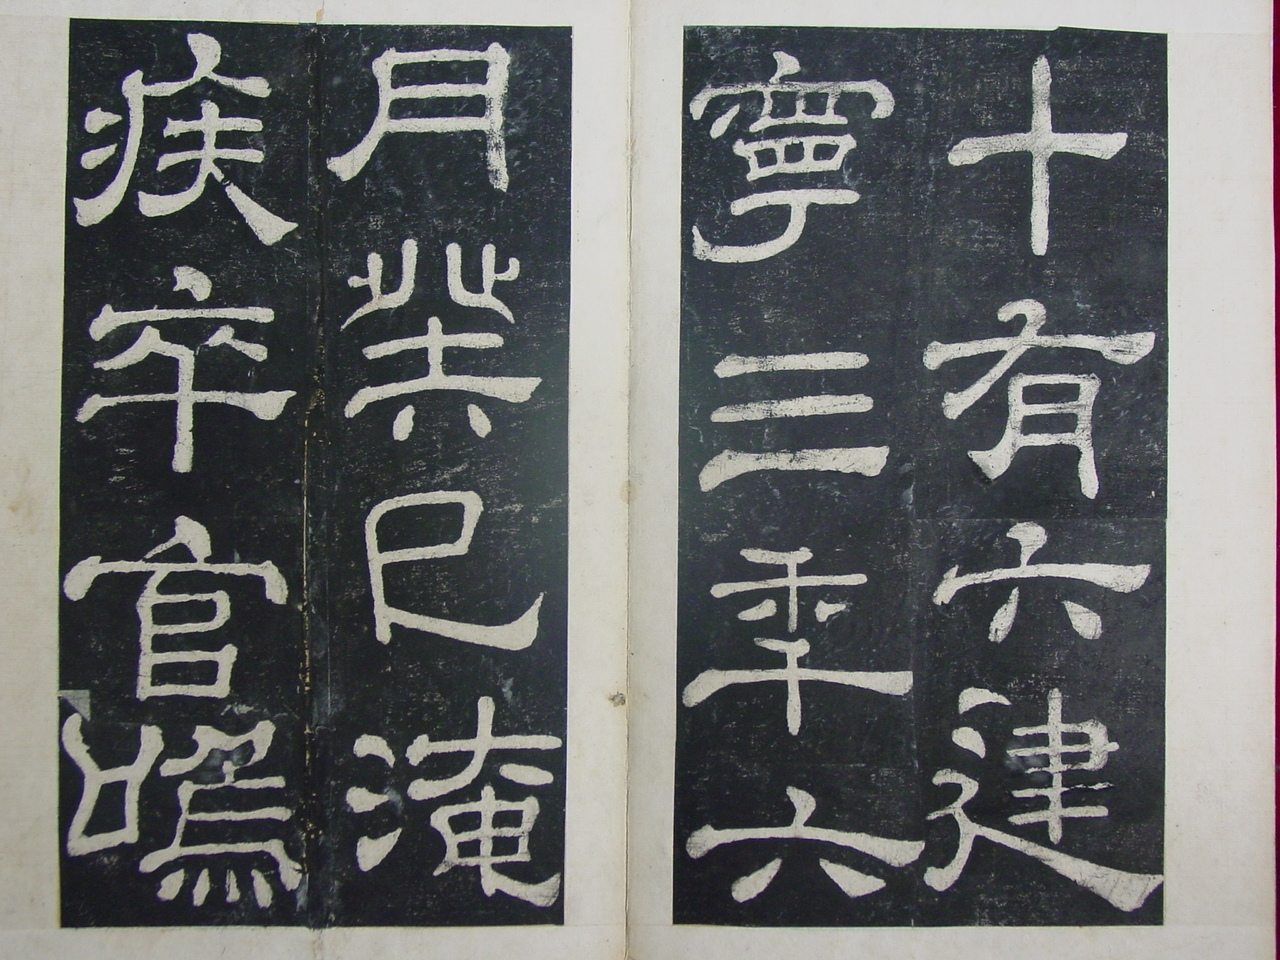 十有六建
寧三秊六
月癸巳淹
疾卒官嗚